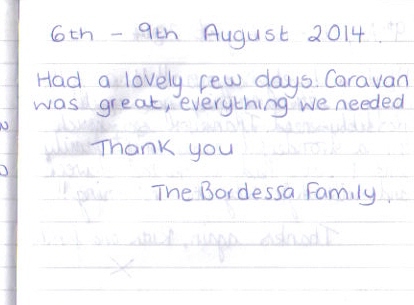 6th - 9th August 2014.
Had a lovely few days. Caravan
was great, everything we needed
Thank you
The Bordessa Family.